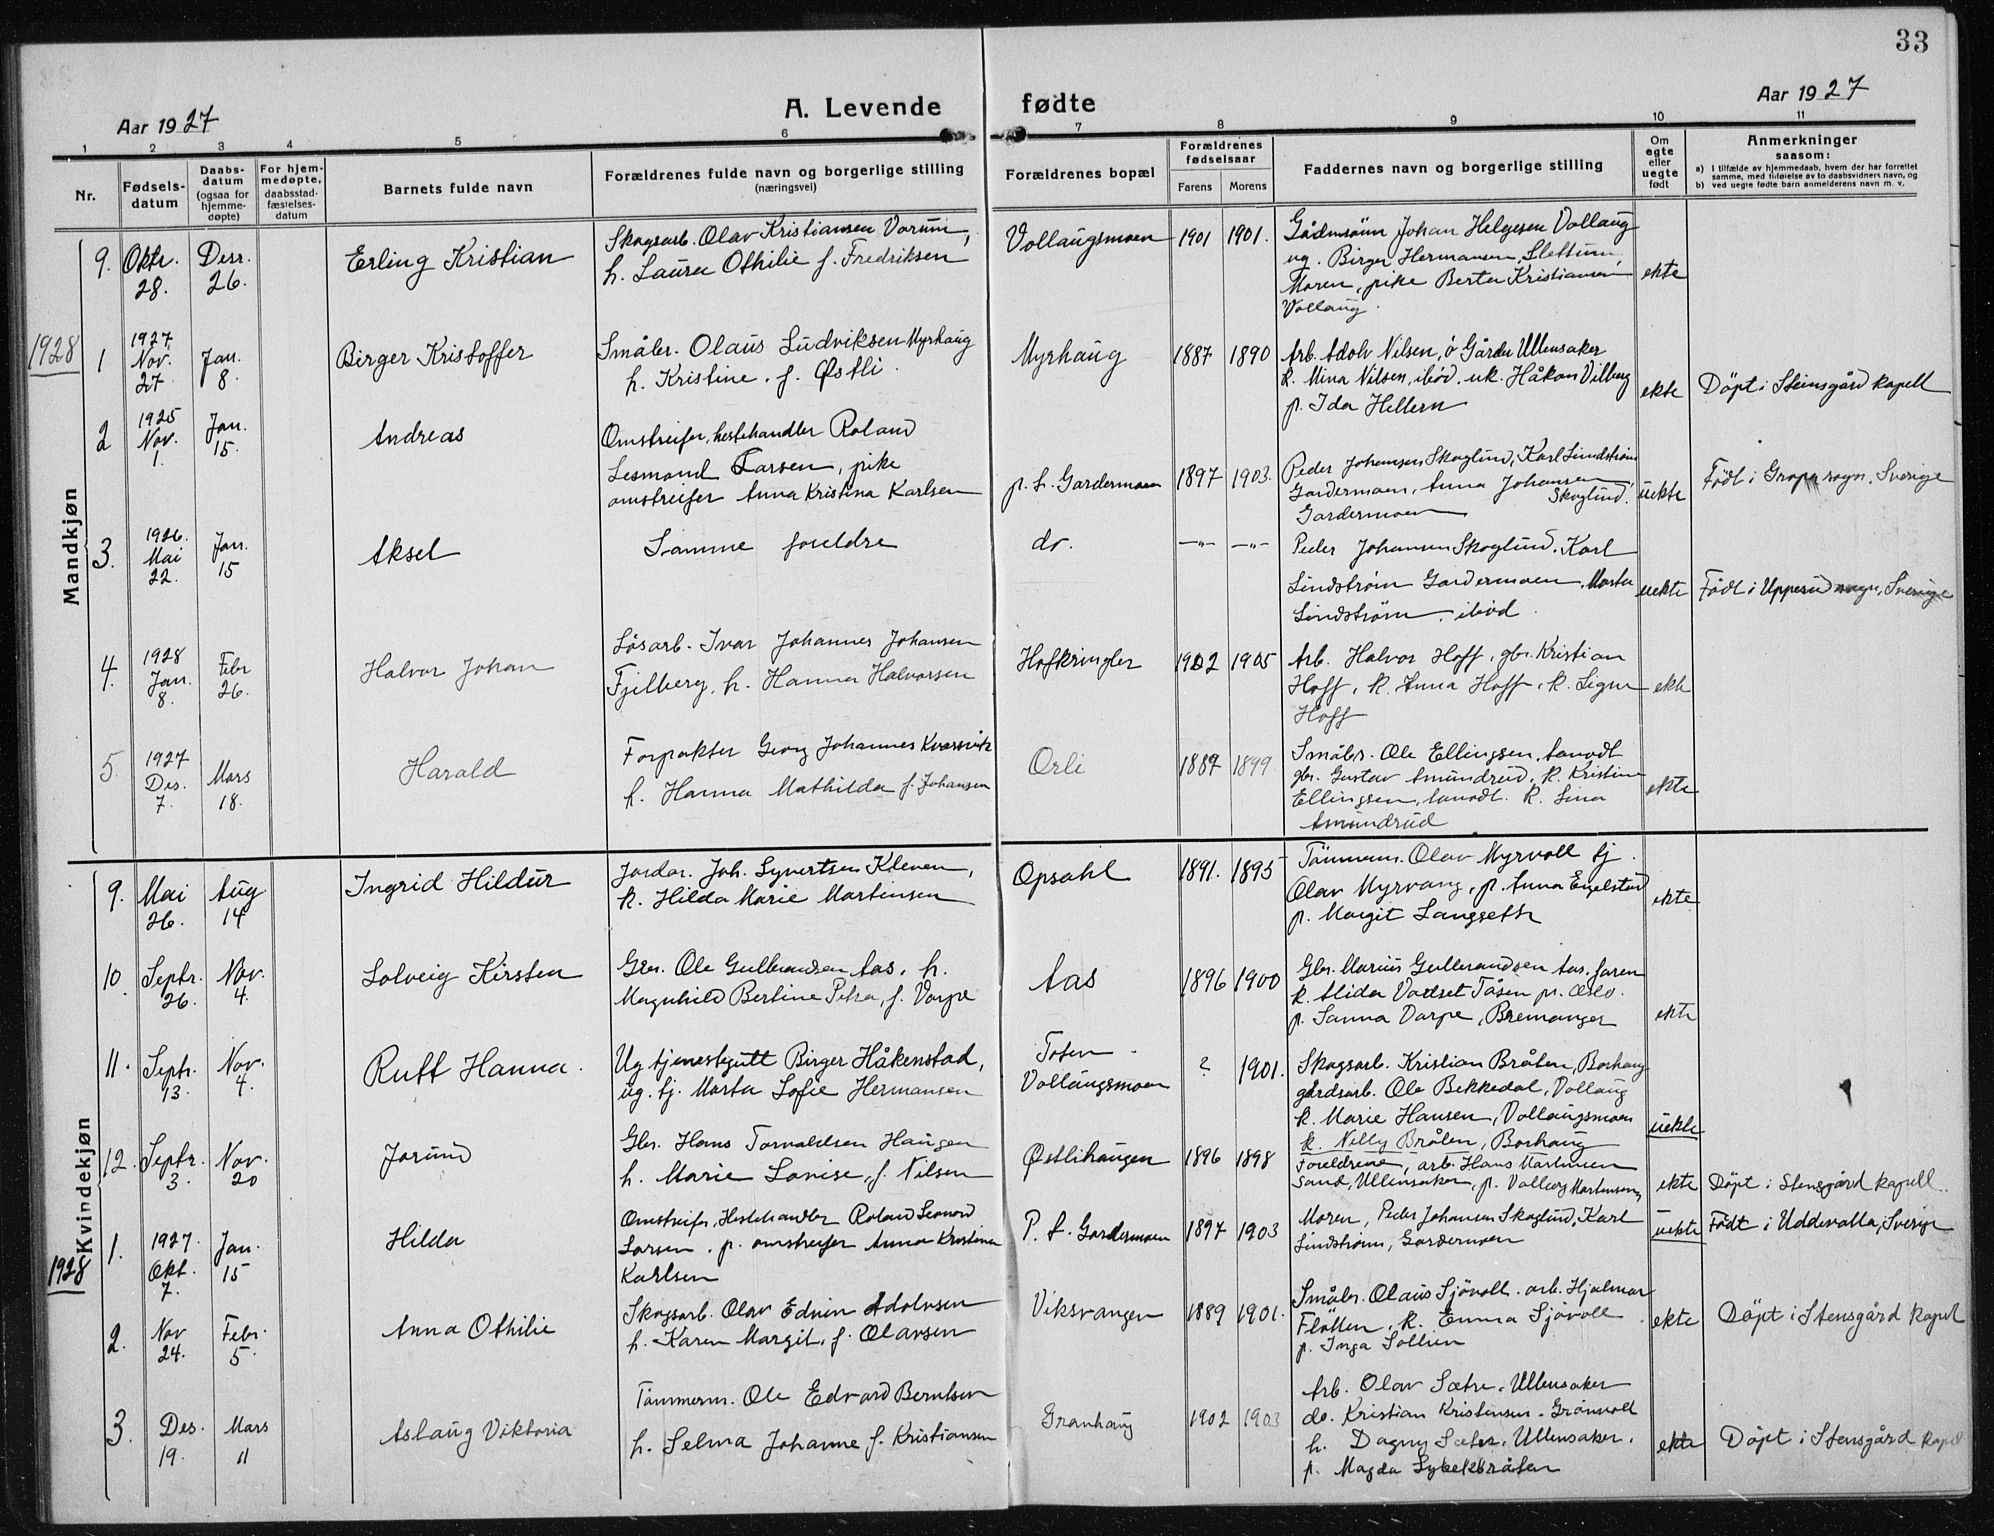 33
Aar 1927
A. Levende fødte
Aar 1927
1 2 3 4 5 6 7 8 9 10 11
Nr.
Fødsels-
datum
Daabs-
datum
(ogsaa for
hjemme-
døpte)
For hjem-
medøpte,
daabsstad-
fæstelses-
datum
Barnets fulde navn
Forældrenes fulde navn og borgerlige stilling
(næringsvei)
Forældrenes bopæl
Forældrenes
fødselsaar
Farens Morens
Faddernes navn og borgerlige stilling
Om
egte
eller
uegte
født
Anmerkninger
saasom:
a) I tilfælde av hjemmedaab, hvem der har forrettet
samme, med tilføielse av to daabsvidners navn, og
b) ved uegte fødte barn anmelderens navn m. v.
Mandkjøn
9. Oktr. 28. Desr. 26.
Erling Kristian
Skogsarb. Olav Kristiansen Vorum,
h. Laura Othilie f. Fredriksen
Vollaugsmoen 1901 1901.
Johan Helgesen Vollaug
ug. Birger Hermansen Slettum,
Moren, pike Berta Kristiansen
Vollaug.
ekte
1928
1 1927 Nov. 27. Jan. 8.
Birger Kristoffer
Småbr. Olaus Ludviksen Myrhaug
h. Kristine. f. Østli.
Myrhaug 1887 1890
Arb. Adolv Nilsen, ó Gårder Ullensaker
k. Mina Nilsen, ibid. uk. Håkon Vilberg
p. Ida Hellern
ekte
Döpt i Steinsgård kapell
2 1925 Nov. 1. Jan. 15.
Andreas
Omstreifer, hestehandler Roland
Lesmond Larsen, pike
omstreifer Anna Kristina Karlsen
p. t. Gardermoen 1897 1903.
Peder Johansen Skoglund, Karl Lindstrøm
Gardermoen, Anna Johansen
Skoglund.
Gardermoen
uekte
Födt i sogn, Sverige
3. 1926. Mai 22. Jan. 15
Aksel
Samme foreldre
do. —"— —"—
Peder Johansen Skoglund, Karl
Lindstrøm Gardermoen, Marta
Lindstrøm, ibid.
uekte
Födt i Upperud sogn, Sverige
4. 1928 Jan. 8. Febr 26.
Halvor Johan
Løsarb. Ivar Johannes Johansen
Fjilberg, h. Hanna Halvorsen
Hofkringler 1902 1905
Arb. Halvor Hoff, gbr. Kristian
Hoff, k. Anna Hoff, k. Signe
Hoff
ekte
5. 1927 Des. 7. Mars 18.
Harald
Forpakter Georg Johannes
h. Hanna Mathilda f. Johansen
Orli 1887 1899
Småbr. Ole Ellingsen,
gbr. Gustav Amundrud, k. Kristine
Ellingsen, k. Lina
Amundrud
ekte
Kvindekjøn
9. Mai 26. Aug 14
Ingrid Hildur
Jordar. Joh. Syvertsen Kleven,
k. Hilda Marie Martinsen
Opsahl 1891. 1895
Tömmerm. Olav Myrvoll tj.
Olav Myrvang, p. Anna Engelstad
p. Margit Langseth
ekte
10. Septr. 26. Nov. 4.
Solveig Kirsten
Gbr. Ole Gulbrandsen Aas, h.
Magnhild Bertine Petra, f. Varpe
Aas 1896 1900
Gbr. Marius Gulbrandsen Aas, faren
k. Alida Vadset Tåsen pr. Oslo.
p. Sanna Varpe, Bremanger
ekte
11. Septr. 13. Nov. 4.
Ruth Hanna.
Ug tjenestegutt Birger Håkenstad,
ug. tj. Marta Sofie Hermansen
Toten -
Vollaugsmoen ? 1901.
Skogsarb. Kristian Bråten, Borhaug
gårdsarb. Ole Bekkedal, Vollaug
k. Marie Hansen, Vollaugsmoen
k. Nelly Bråten, Borhaug
uekte
12. Septr. 3. Nov. 20
Jorund
Gbr. Hans Torvaldsen Haugen
h. Marie Lovise, f. Nilsen
Østlihaugen 1896 1898
Foreldrene, arb. Hans Martinsen
Sand, Ullensaker, p. Valborg Martinsen,
ekte
Döpt i Stensgård kapell.
1928
1. 1927. Okt. 7. Jan. 15
Hilda
Omstreifer, Hestehandler Roland Leonard
Larsen, p. omstreifer Anna Kristina
Karlsen
P. t. Gardermoen 1897 1903
Moren, Peder Johansen Skoglund, Karl
Lindstrøm, Gardermoen
uekte
Födt i Uddevalla, Sverige
2. Nov 24. Febr. 5.
Anna Othilie
Skogsarb. Olav Edvin Adolvsen
h. Karen Margit, f. Olavsen
Viksvangen 1889 1901.
Småbr. Olaus Sjövoll, arb. Hjalmar
Fløtten, k. Emma Sjövoll
p. Inga Sollien
ekte
Döpt i Stensgård kapel
3. Des. 19. Mars 11
Aslaug Viktoria
Tömmerm. Ole Edvard Berntsen
h. Selma Johanne f. Kristiansen
Granhaug 1902 1903
Arb. Olav Sætre, Ullensaker
do. Kristian Kristensen, Grönvoll
h. Dagny Sæter, Ullensaker.
p. Magda Sybekbråten
ekte
Döpt i Stensgård kapel